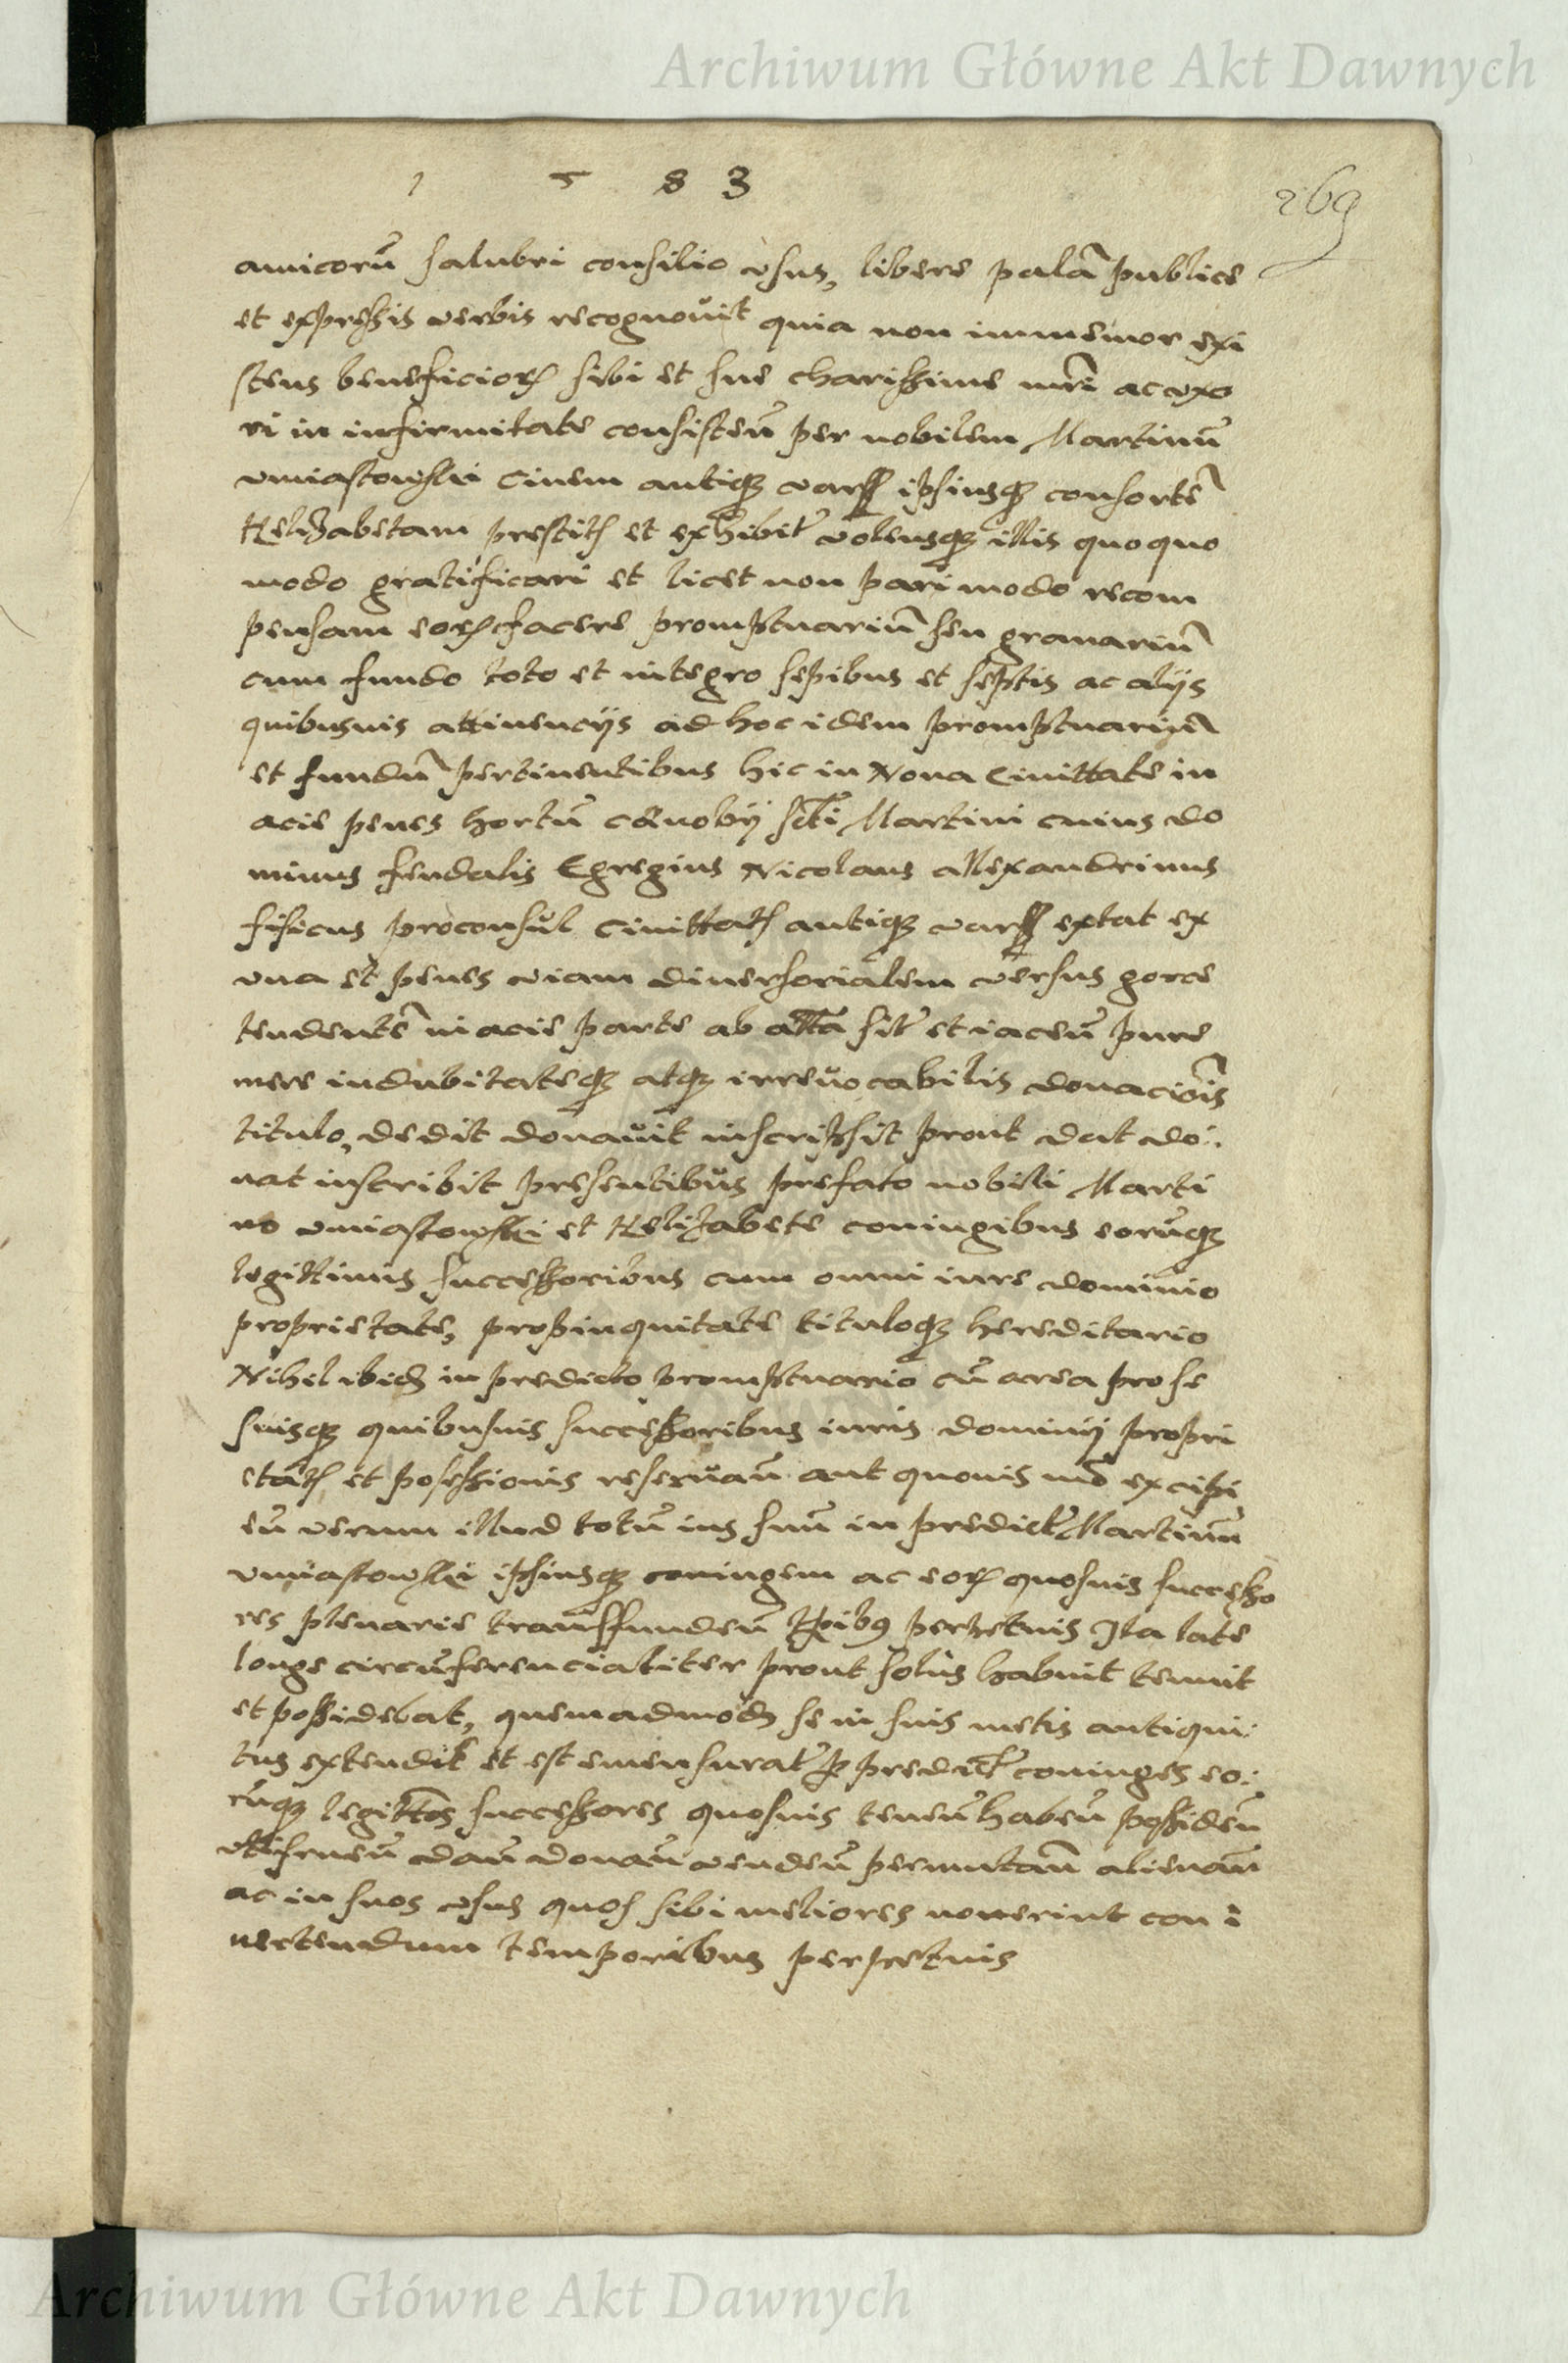 Archiwum Główne Akt Dawnych
1 5 8 3
269
amicorũ salubri consilio usus, libere palã publice
et expressis verbis recognovit quia non immemor exi
stens beneficioꝝ sibi et sue charissime mr̃i ac uxo
ri in infirmitate consisteñ per nobilem Martinũ
Umiastowski civem antiqꝫ Varß ipsiusqꝫ consortẽ
Helizabetam prestitꝭ et exhibit̃ volensqꝫ illis quoquo
modo gratificari et licet non pari modo recom
pensam eoꝝ facere promptuariũ seu granariũ
cum fundo toto et integro sepibus et septis ac alijs
quibusvis attinencijs ad hoc idem promptuariũ
et fundũ pertinentibus hic in Nova Civittate in
acie penes hortũ cœnobij scti Martini cuius do
minus feudalis Egregius Nicolaus Allexandrinus
fisicus proconsul civittatꝭ antiqꝫ Varß extat ex
una et penes viam diversorialem versus gorce
tendentẽ in acie parte ab altã sit̃ et iaceñ pure
mere indubitateqꝫ atqꝫ irrevocabilis donaciõis
titulo, dedit donavit inscripsit prout dat do:
nat inscribit presentibus prefato nobili Marti
no Umiastowski et Helizabete coniugibus eorũqꝫ
legittimis successoribus cum omni iure dominio
proprietate, propinquitate tituloqꝫ hereditario
Nihil ibidꝫ in predicto promptuario cũ area pro se
suisqꝫ quibusvis successoribus iuris dominij propri
etatꝭ et possessionis reservañ aut quovis mõ excipi
eñ verum illud totũ ius suũ in predict̃ Martinũ
Umiastowski ipsiusqꝫ coniugem ac eoꝝ quosvis successo
res plenarie transfundeñ tp̃ibꝰ perpetuis Ita late
longe circũferencialiter prout solus habuit tenuit
et possidebat, quemadmodꝫ se in suis metis antiqui:
tus extendit et est emensurat̃ ꝑ predict̃ coniuges eo:
rũqꝫ legittõs successores quosvis teneñ habeñ possideñ
utifrueñ dañ donañ vendeñ permutañ alienañ
ac in suos usus quos sibi meliores noverint con
vertendum temporibus perpetuis
Archiwum Główne Akt Dawnych